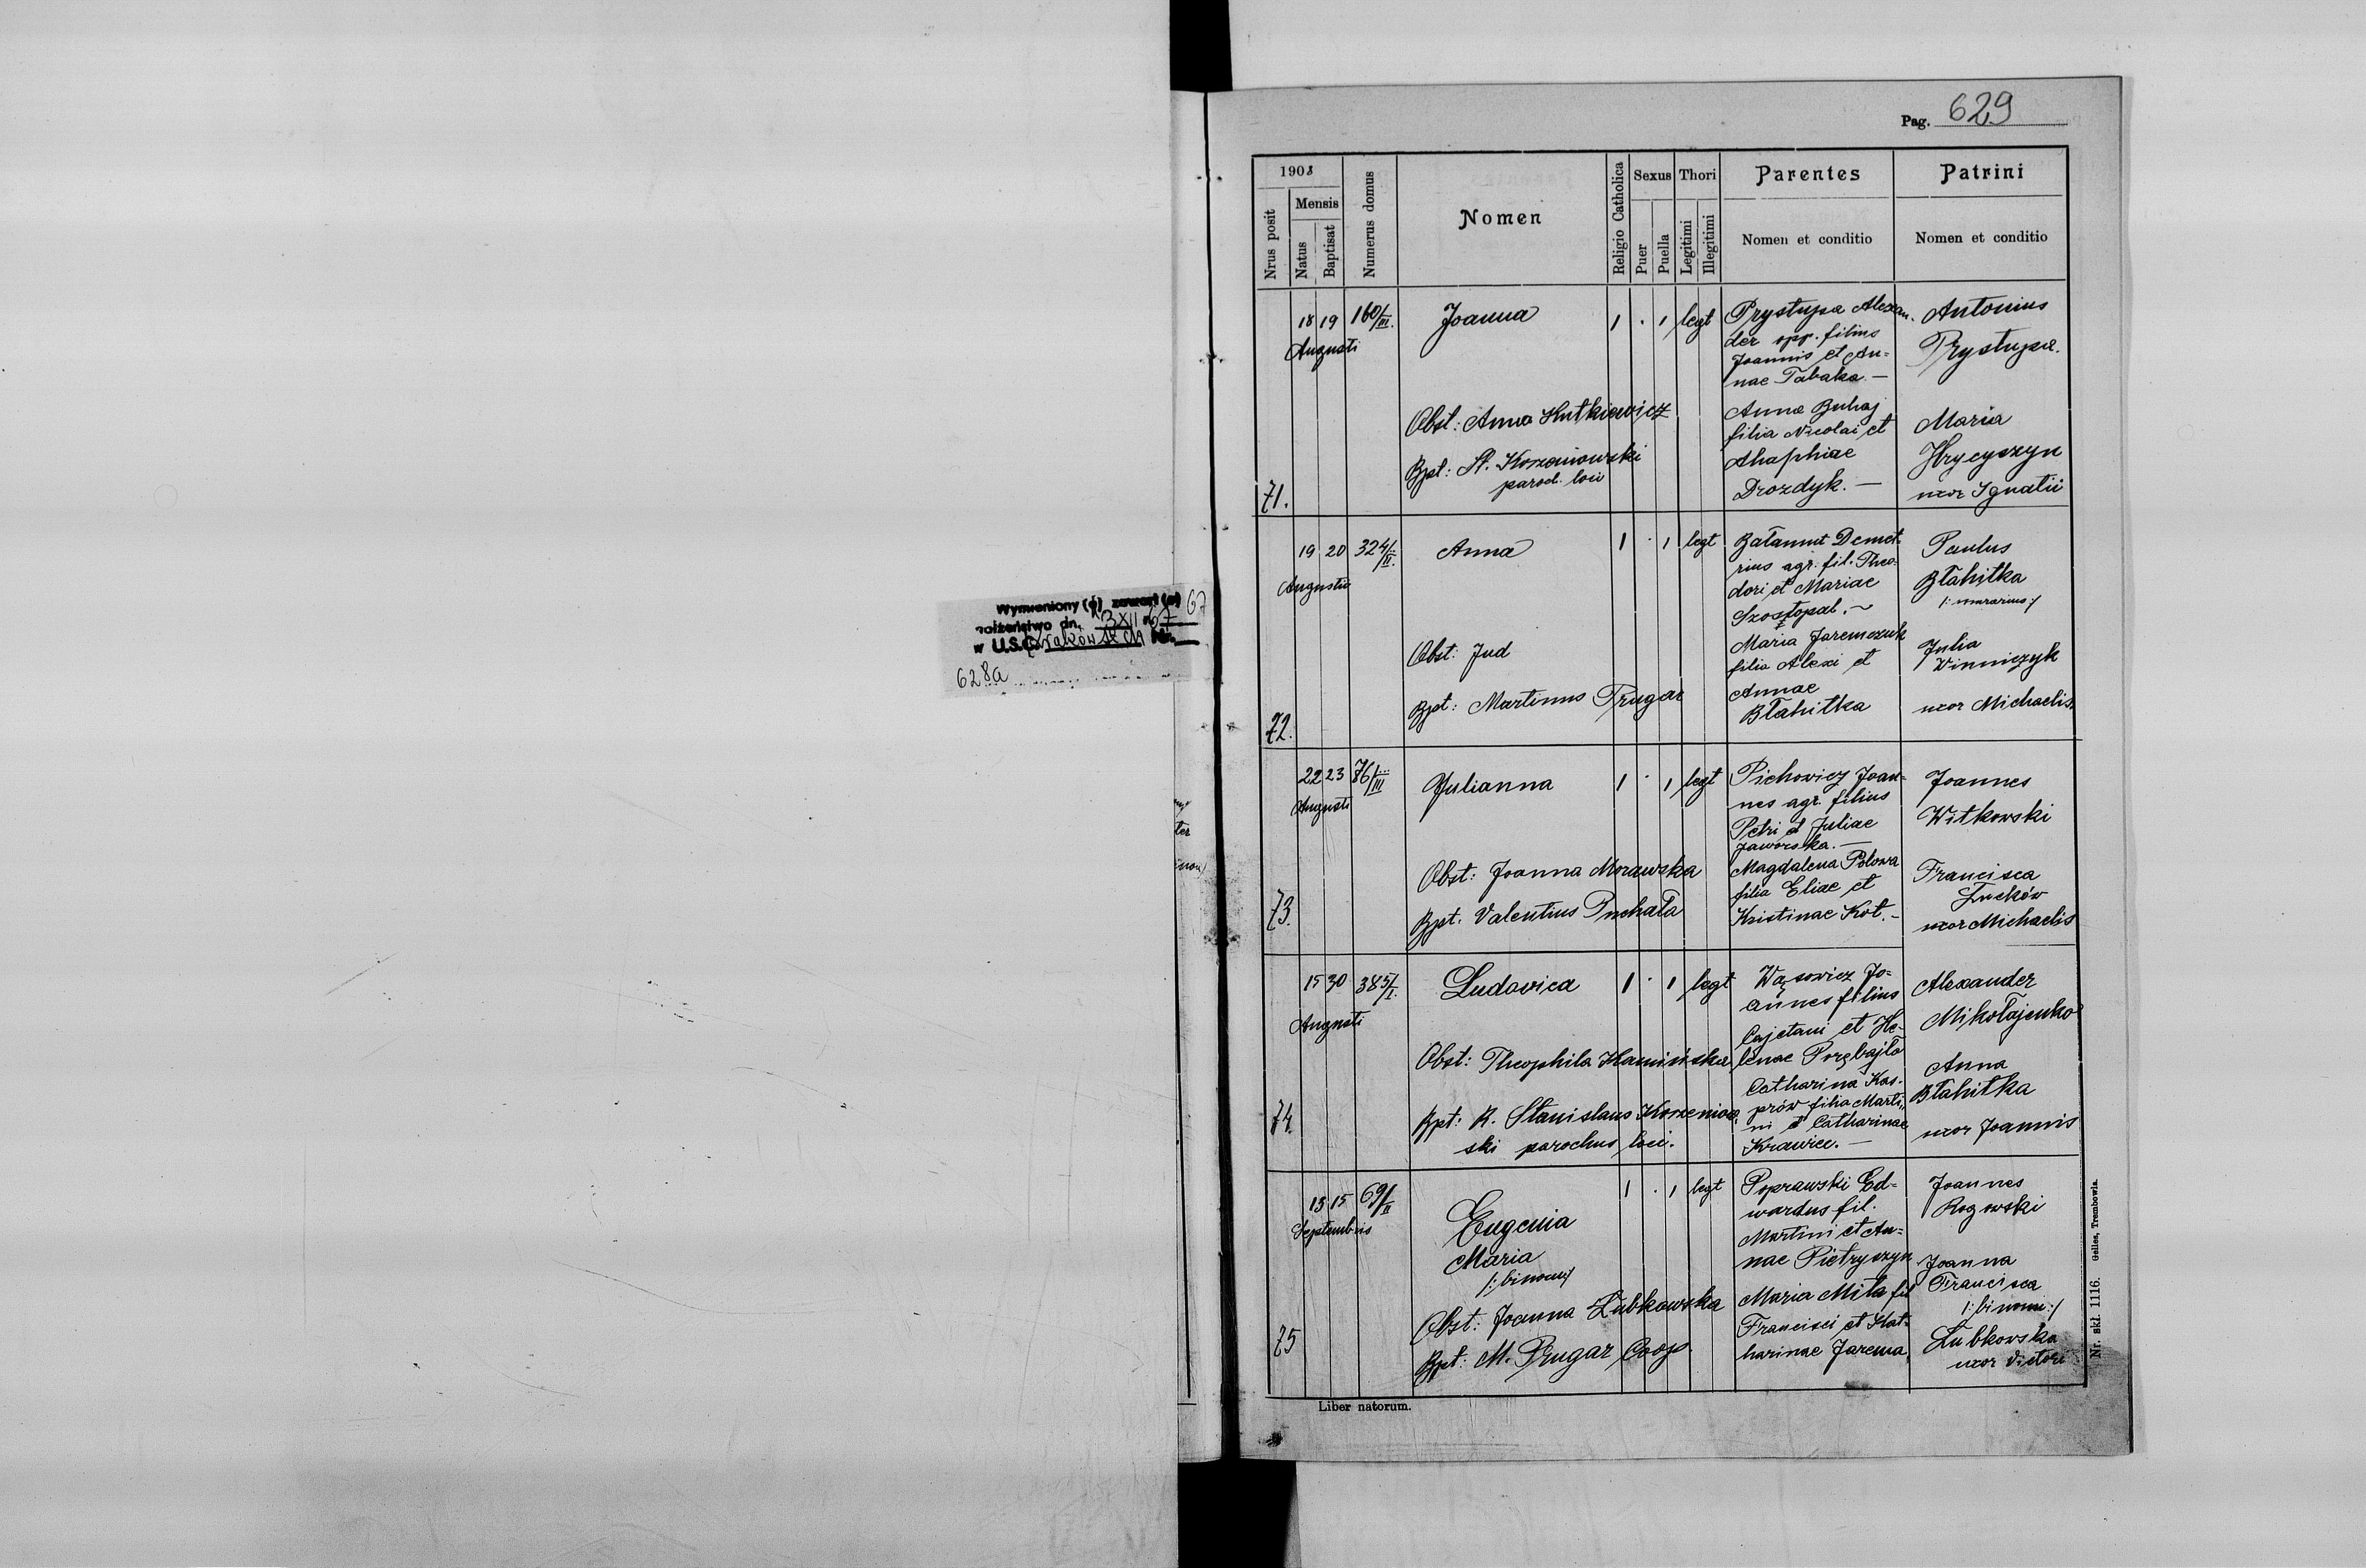 Pag. 629
1903
Mensis
Nrus posit
Natus
Baptisat
Numerus domus
Nomen
Religio Catholica
Sexus
Puer
Puella
Thori
Legitimi
Illegitimi
Parentes
Nomen et conditio
Patrini
Nomen et conditio
71.
18 19 160/III.
Augusti
Joanna
1 . 1 legt
Obst: Anna Hutkiewicz
Bpt: St. Korzeniowski
paroch. loci
Prystupa Alexan-
der opp. filius
Joannis et An=
nae Tabaka. —
Anna Buhaj
filia Nicolai et
Ahaphiae
Drozdyk. —
Antonius
Prystupa.
Maria
Hrycyszyn
uxor Ignatii
72.
19 20 324/II.
Augusti
Anna
1 . 1 legt
Obst: Jud
Bpt: Martinus Prugar
Bałamut Demet-
rius agr. fil. Theo-
dori et Mariae
Szostopal. ~
Maria Jaremczuk
filia Alexi et
Annae
Błahitka
Paulus
Błahitka
/: murarius :/
Julia
Winniczyk
uxor Michaelis.
73.
22 23 76/III
Augusti
Julianna
1 . 1 legt
Obst: Joanna Morawska
Bpt. Valentius Puchała
Pichowicz Joan=
nes agr. filius
Petri et Juliae
Jaworska. —
Magdalena Polowa
filia Eliae et
Kristinae Kot. -
Joannes
Witkowski
Francisca
Łucków
uxor Michaelis
74.
15 30 385/I.
Augusti
Ludovica
1 . 1 legt
Obst: Theophila Kamińska
Bpt: R. Stanislaus Korzeniow-
ski parochus loci.
Wąsowicz Jo=
annes filius
Cajetani et He-
lenae Porębajło
Catharina Kas-
prów filia Marti-
ni et Catharinae
Krawiec. —
Alexander
Mikołajenko
Anna
Błahitka
uxor Joannis
75
13 15 69/II
Septembris
Eugenia
Maria
/: binom :/
1 . 1 legt
Obst: Joanna Łubkowska
Bpt: M. Prugar Coop.
Poprawski Ed=
wardus fil.
Martini et An=
nae Pietryszyn
Maria Miła fil
Francisci et Kat-
harinae Jarema
Joannes
Rogowski
Joanna
Francisca
/: binomi :/
Łubkowska
uxor Victori
Liber natorum.
Nr. skł. 1116. Gelles, Trembowla.
Wymieniony (a) zawarł (a)
małżeństwo dn. 3 XII 67
w U.S.C. Nr.
628a
ter